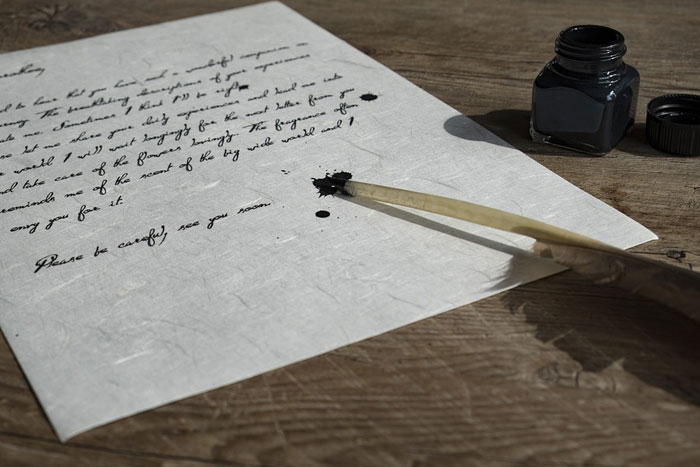 to hear that you have had a wonderful companion on
The breathtaking descriptions of your experiences
me. Sometimes I think I'll be right
let me share your daily experiences and lead me into
world. I will wait longingly for the next letter from you
and take care of the flowers lovingly. The fragrance often
reminds me of the scent of the big wide world and I
envy you for it.
Please be careful, see you soon